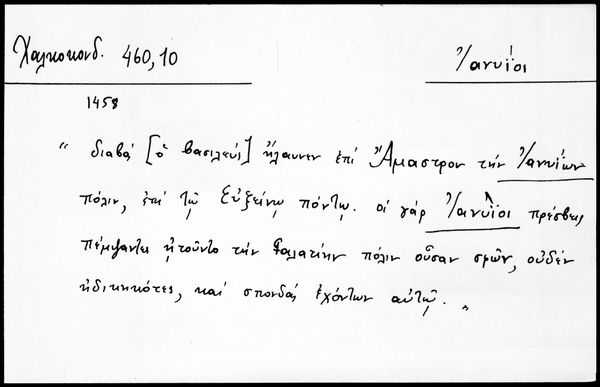 Χαλκοκονδ. 460,10
Ἰανυΐοι
1458
" διαβὰς [ὁ βασιλεὺς] ἤλαυνεν ἐπὶ Ἄμαστρον τὴν Ἰανυΐων
πόλιν, ἐπὶ τῷ Εὐξείνῳ πόντῳ. οἱ γὰρ Ἰανυΐοι πρέσβεις
πέμψαντες ᾐτοῦντο τὴν Γαλατίην πόλιν οὖσαν σφῶν, οὐδὲν
ἠδικηκότες, καὶ σπονδὰς ἐχόντων αὐτῷ. "